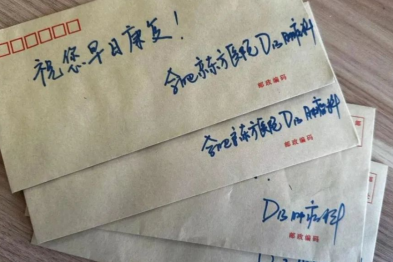 祝您早日康复！
合肥京东方医院D13肿瘤科
邮政编码
合肥京东方医院D13肿瘤科
邮政编码
D13肿瘤科
邮政编码